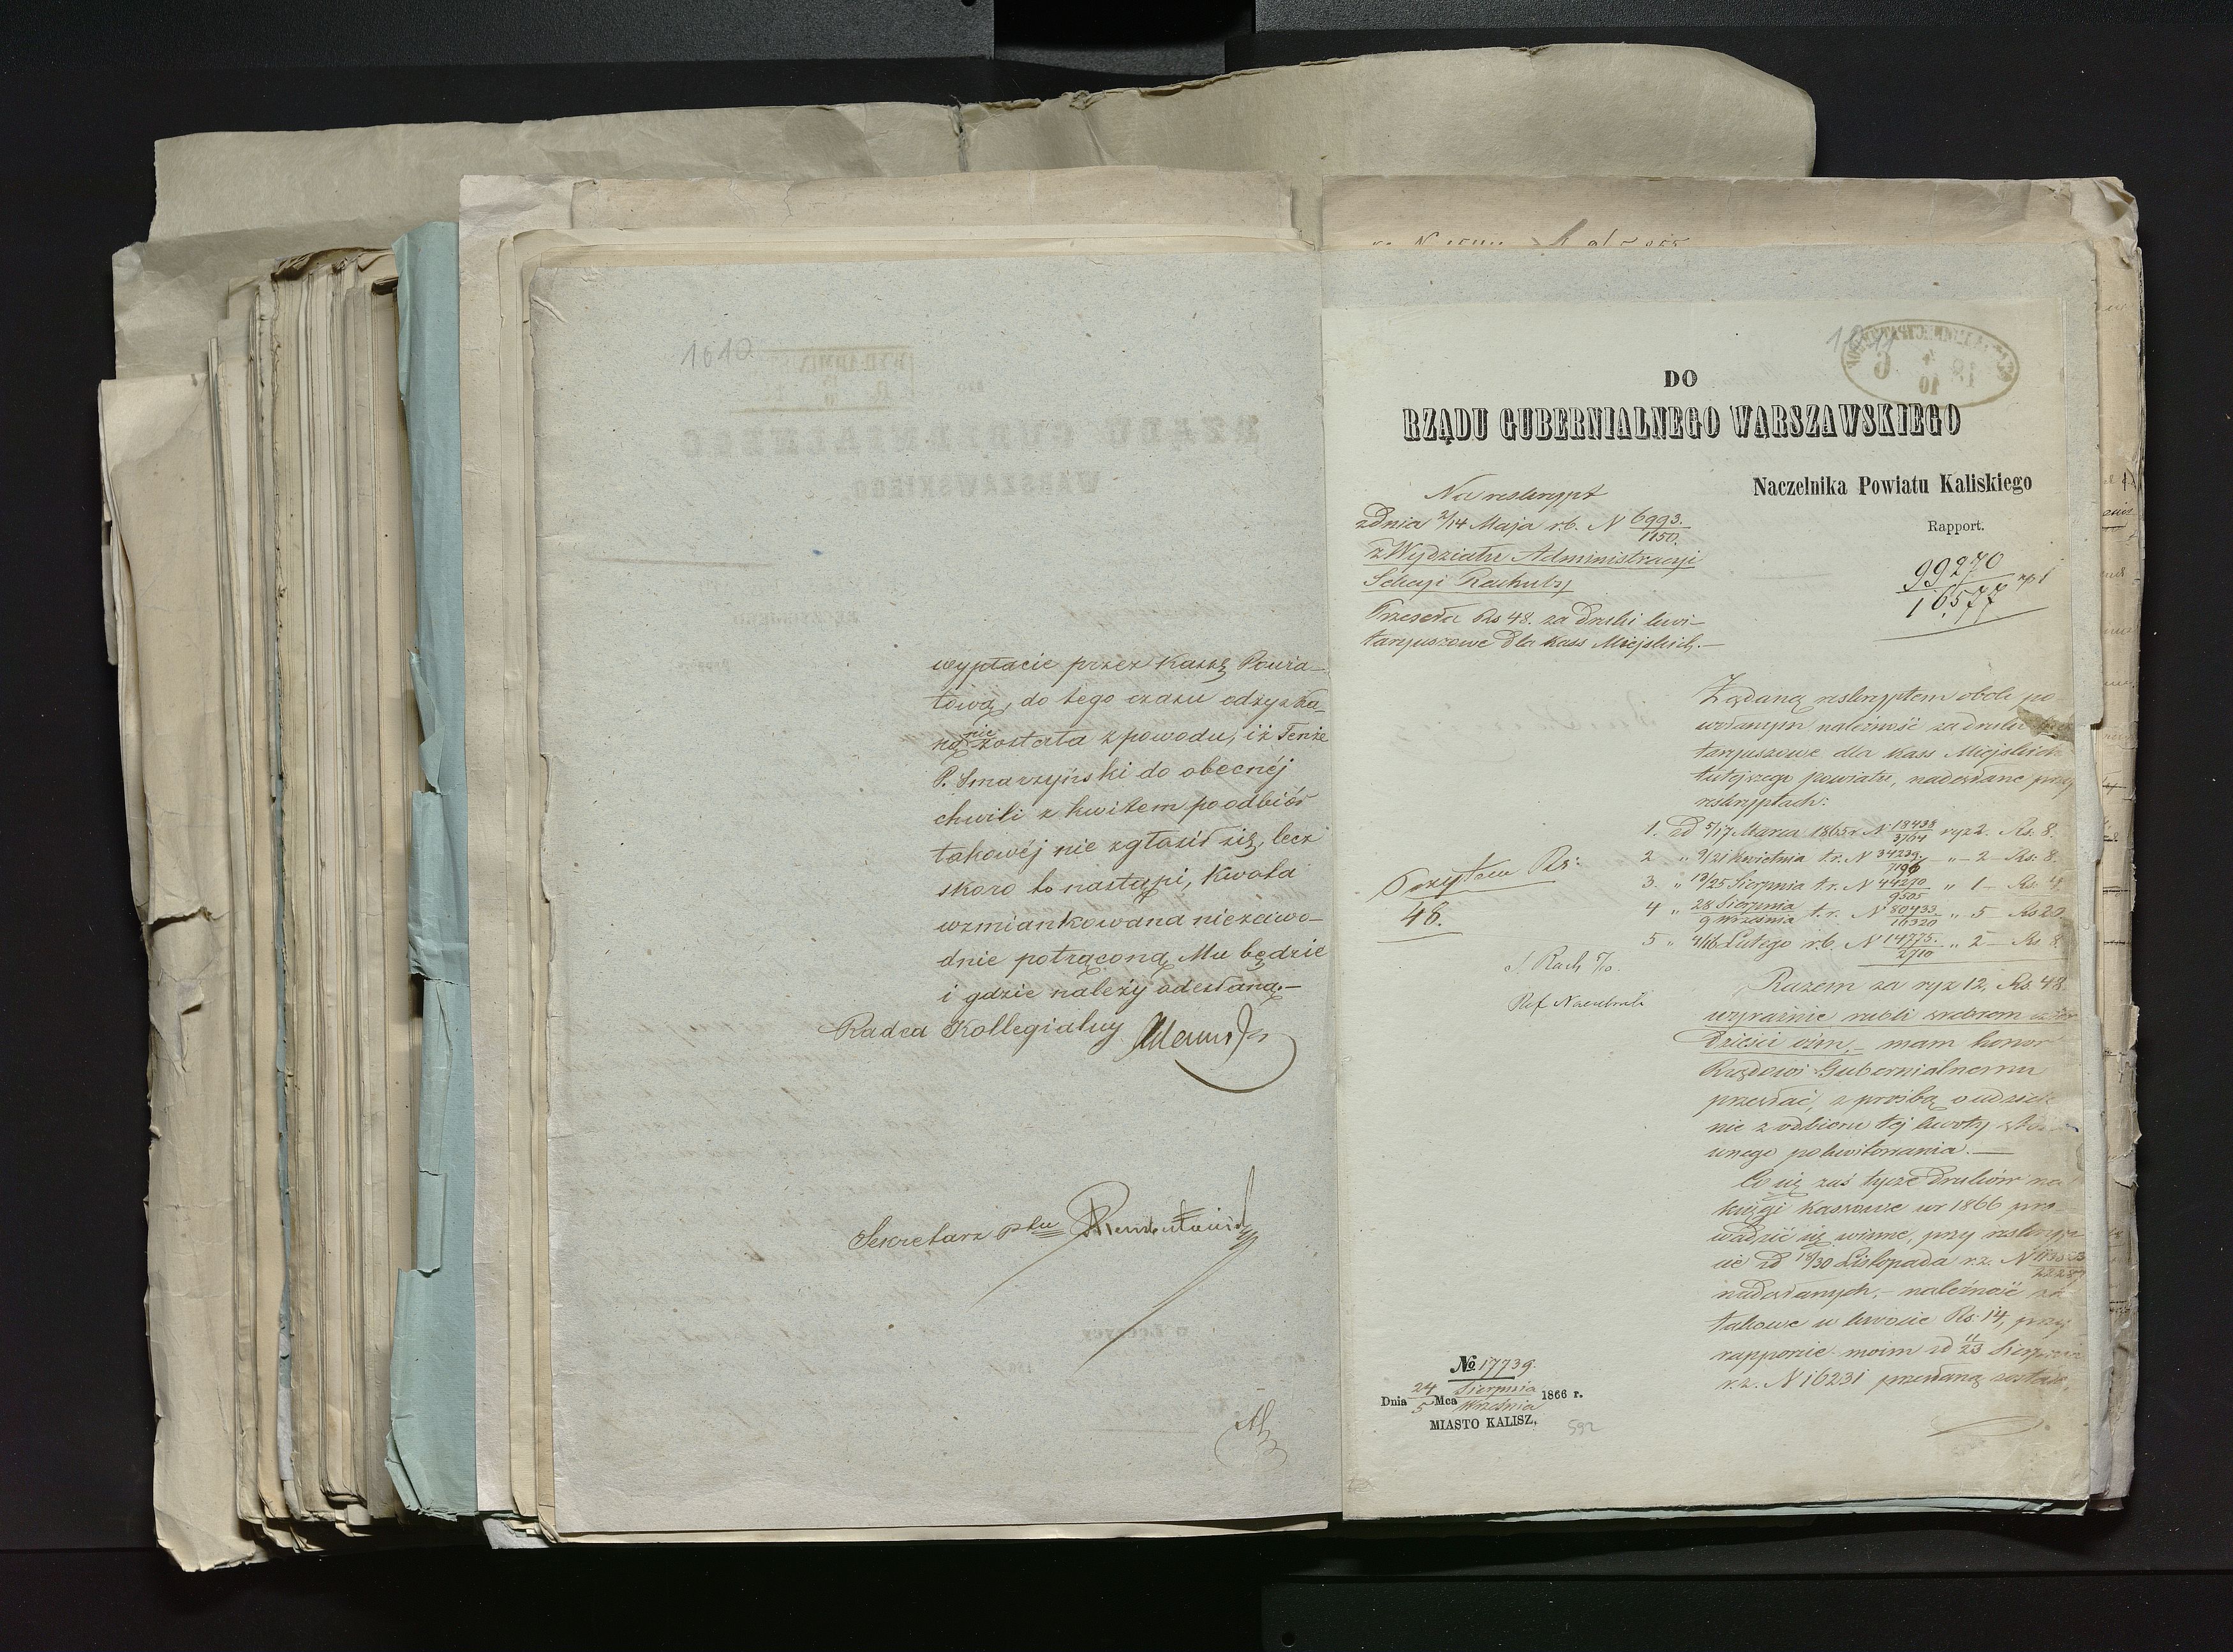 1610
wypłacie przez Kassę Powia-
tową, do tego czasu odzyska-
ną nie została z powodu, iż Tenże
P. Smarzyński do obecnéj
chwili z kwitem po odbiór
takowéj nie zgłosił się, lecz
skoro to nastąpi, kwota
wzmiankowana niezawo-
dnie potrąconą Mu będzie
i gdzie należy odesłaną.-
Radca Kollegialny
Sekretarz
DO
RZĄDU GUBERNIALNEGO WARSZAWSKIEGO
Naczelnika Powiatu Kaliskiego
Rapport.
99270
16577
Na reskrypt
z Dnia 2/14 Maja r.b. N 6993./1150.
z Wydziału Administracyi
Sekcyi Rachuby
Przeseła Rs 48. za Druki kwi-
taryuszowe dla Kass Miejskich.-
Żądaną reskryptem obok po
wołanym należność za druki
taryuszowe dla Kass Miejskich
tutejszego powiatu, nadesłane przy
reskryptach:
1. Z d 5/17 Marca 1865 r N 18438/3764 ryz 2. Rs. 8.
2 " 9/21 Kwietnia t.r. N 34239./7196 " - 2 - Rs: 8.
3. " 13/25 Sierpnia t.r. N 44270/9505 " 1 - Rs. 4
4 " 28 Sierpnia/9 Września t.r. N 80433/16320 " 5 Rs 20.
5 " 4/16 Lutego r.b. N 14775./2710 " 2 - Rs 8
Przytem Rs:
48.
Razem za ryz 12, Rs. 48
wyraźnie rubli srebrem
dzieści ośm,- mam honor
Rządowi Gubernialnemu
przesłać, z prośbą o udziele
nie z odbioru tej kwoty
wnego pokwitowania.-
Co się zaś tycze Druków na
księgi kassowe w r 1866 pro-
wadzić się winne, przy reskryp
cie z d 18/30 Listopada r.z. N
nadesłanych,- należność za
takowe w kwocie Rs. 14, przy
rapporcie moim z d 11/23 Sierpnia
r.z. N 16231 przesłaną została.
No 17739.
Dnia 24/5 Mca Sierpnia/Września 1866 r.
MIASTO KALISZ.
592